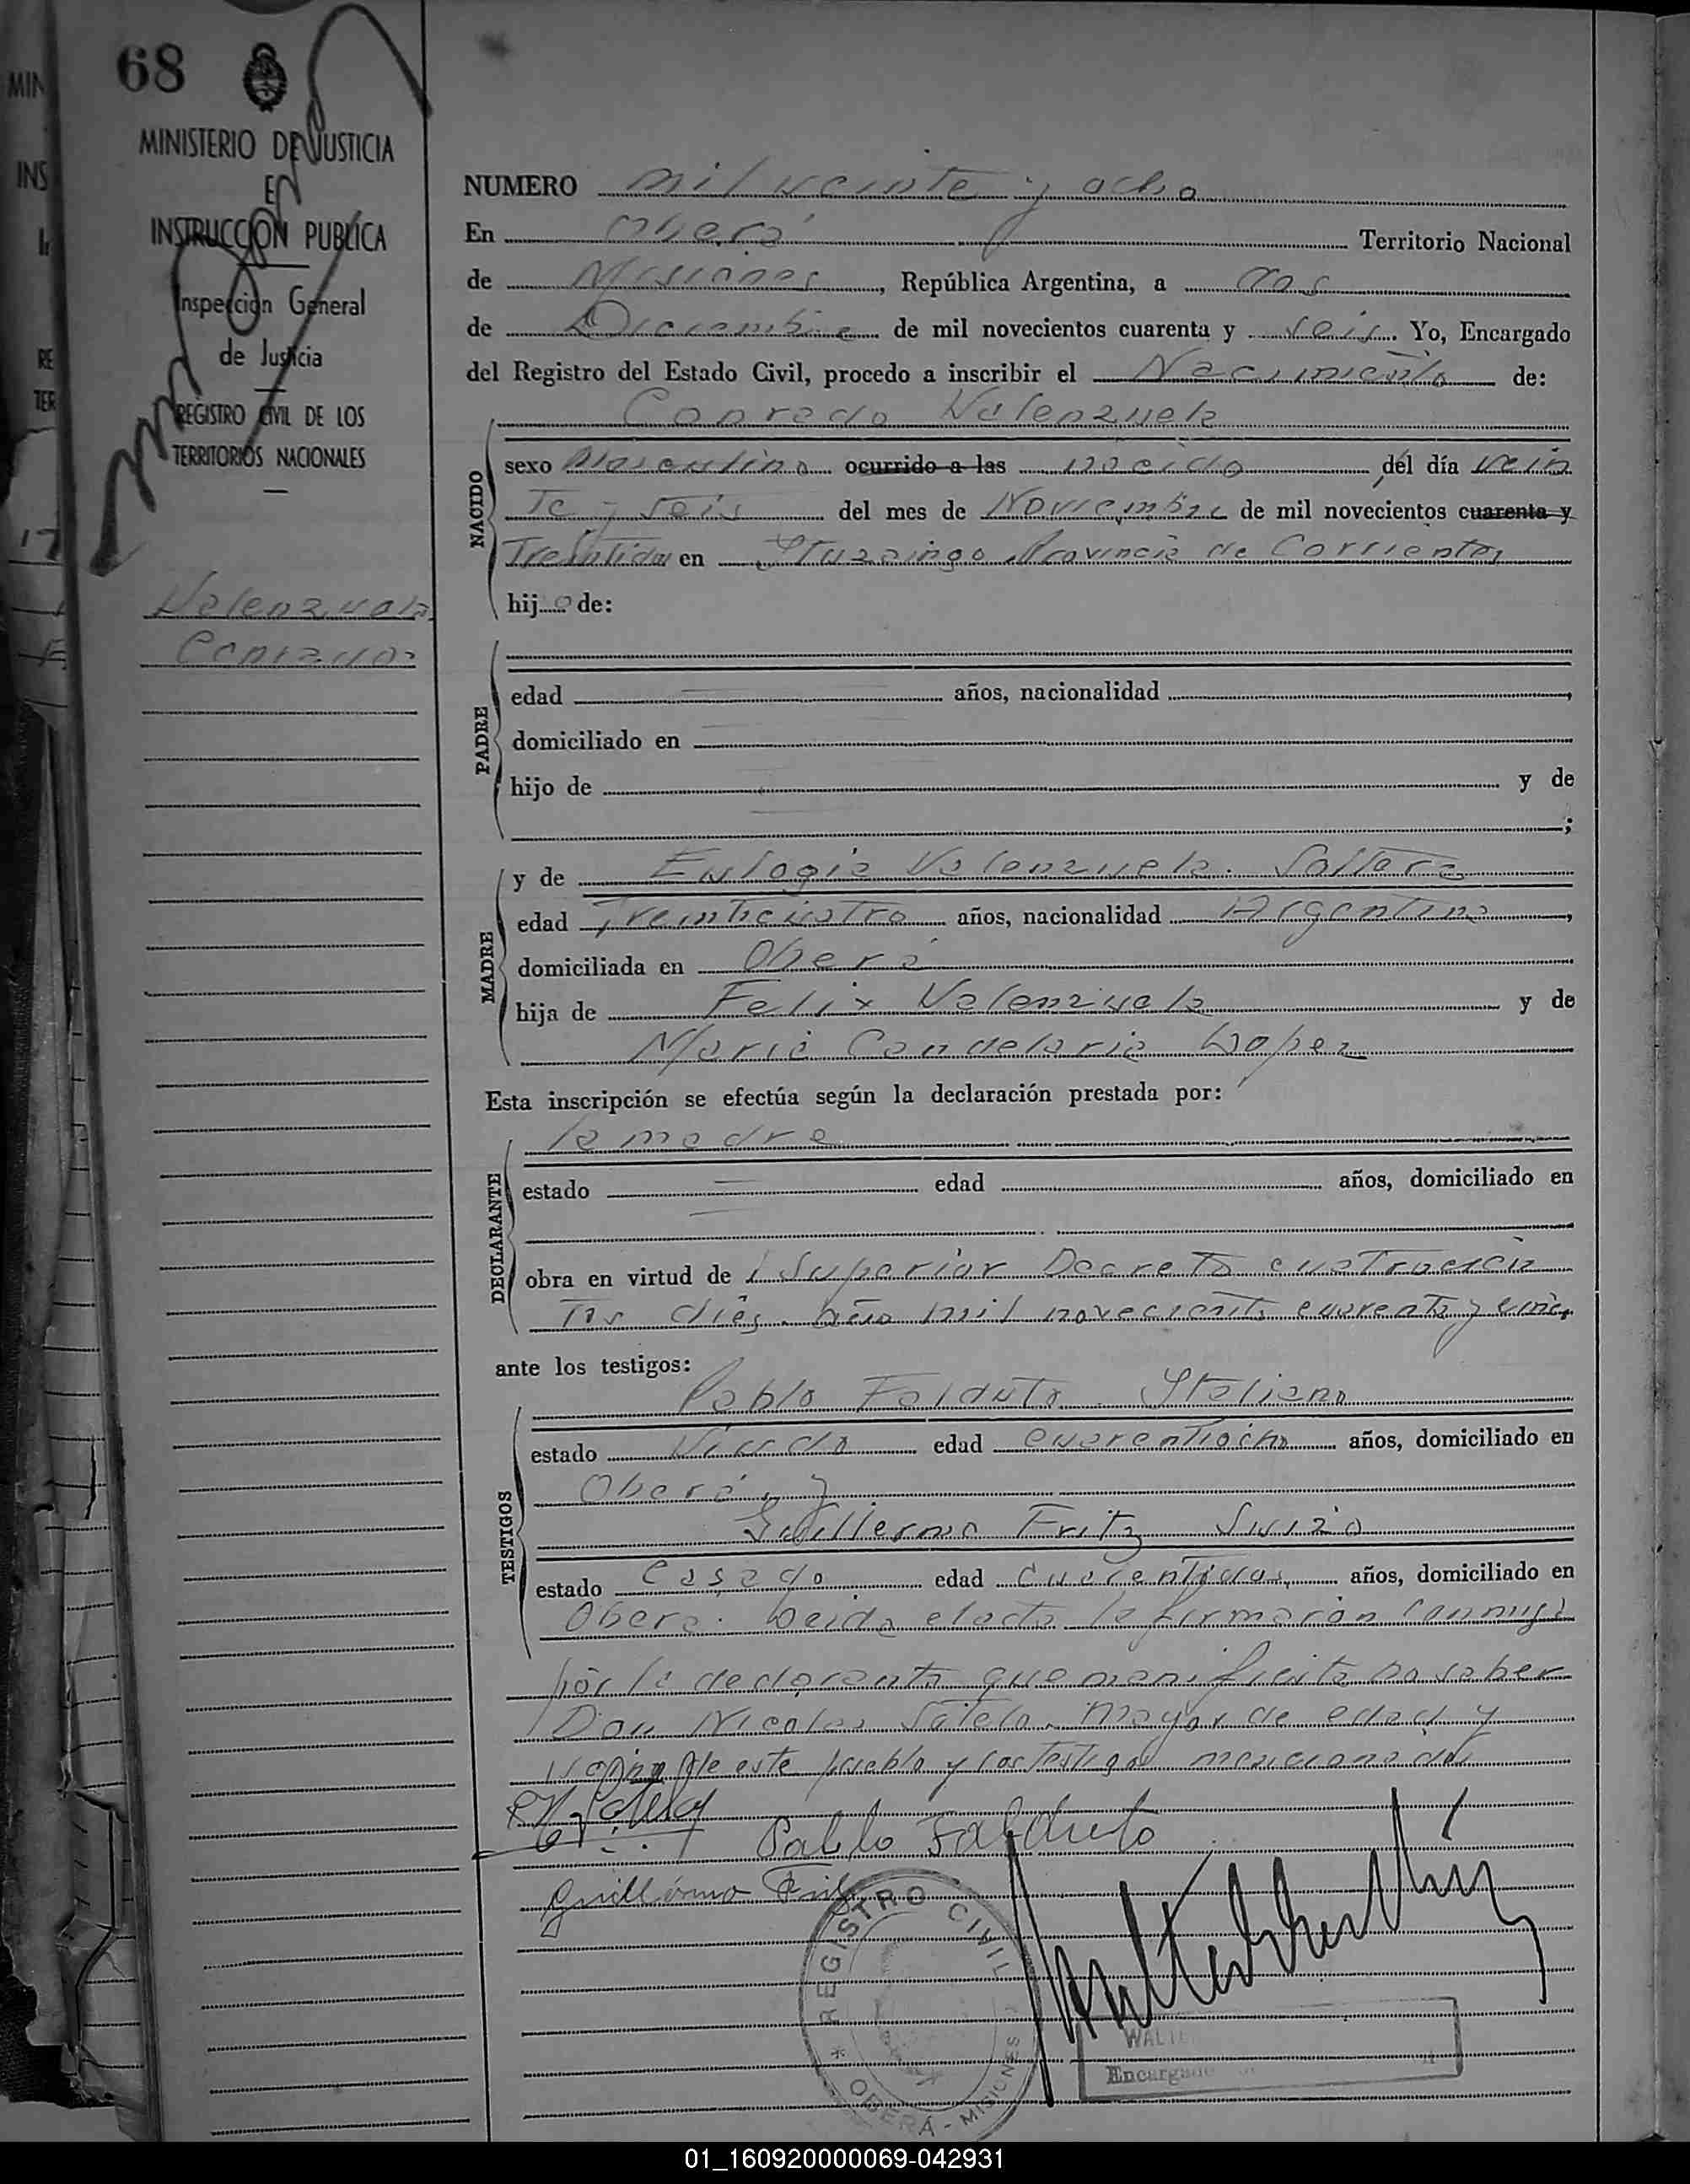 68
MINISTERIO DE JUSTICIA
E
INSTRUCCION PUBLICA
Inspección General
de Justicia
REGISTRO CIVIL DE LOS
TERRITORIOS NACIONALES
Valenzuela
Conrado
NUMERO mil veinte y ocho
En Oberá Territorio Nacional
de Misiones, República Argentina, a dos
de Diciembre de mil novecientos cuarenta y seis. Yo, Encargado
del Registro del Estado Civil, procedo a inscribir el Nacimiento de:
Conrado Valenzuela
NACIDO
sexo Masculino ocurrido a las nacido del día vein
te y seis del mes de Noviembre de mil novecientos cuarenta y
Treintidos en Ituzaingo Provincia de Corrientes
hijo de:
PADRE
edad años, nacionalidad
domiciliado en
hijo de y de
;
MADRE
y de Eulogia Valenzuela. Soltera
edad Treinticuatro años, nacionalidad Argentina,
domiciliada en Oberá
hija de Felix Valenzuela y de
Maria Candelaria Lopez
Esta inscripción se efectúa según la declaración prestada por:
la madre
DECLARANTE
estado edad años, domiciliado en
obra en virtud de Superior Decreto cuatrocien
tos diez año mil novecientos cuarenta y cinco
ante los testigos:
TESTIGOS
Pablo Falduto Italiano
estado Viudo edad cuarentiocho años, domiciliado en
Oberá y
Guillermo Fritz Suizo
estado casado edad cuarentidos, años, domiciliado en
Oberá. Leida el acta la firmaron conmigo
por la declarante que manifiesta no saber
Don Nicolas Sotelo mayor de edad y
vecino de este pueblo y los testigos mencionados
Pablo Falduto
Guillermo Fritz
REGISTRO CIVIL
* OBERÁ - MISIONES
WALTE
Encargado
01_160920000069-042931